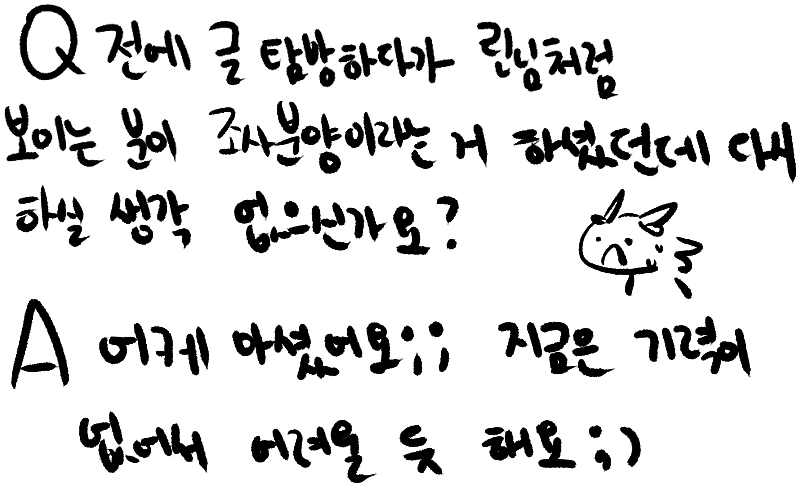 Q 전에 글 탐방하다가 린님처럼
보이는 분이 조사분양이라는 거 하셨던데 다시
하실 생각 없으신가요?
A 어케 아셨어요;; 지금은 기력이
없어서 어려울 듯 해요;)